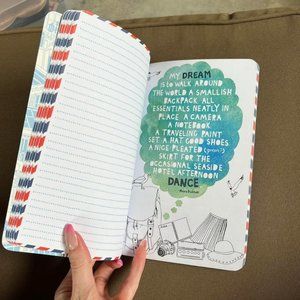 MY DREAM
is to WALK AROUND
THE WORLD A SMALLISH
BACKPACK ALL
ESSENTIALS NEATLY IN
PLACE A CAMERA
A NOTEBOOK
A TRAVELING PAINT
SET A HAT GOOD SHOES
A NICE PLEATED (green?)
SKIRT FOR THE
OCCASIONAL SEASIDE
HOTEL AFTERNOON
DANCE